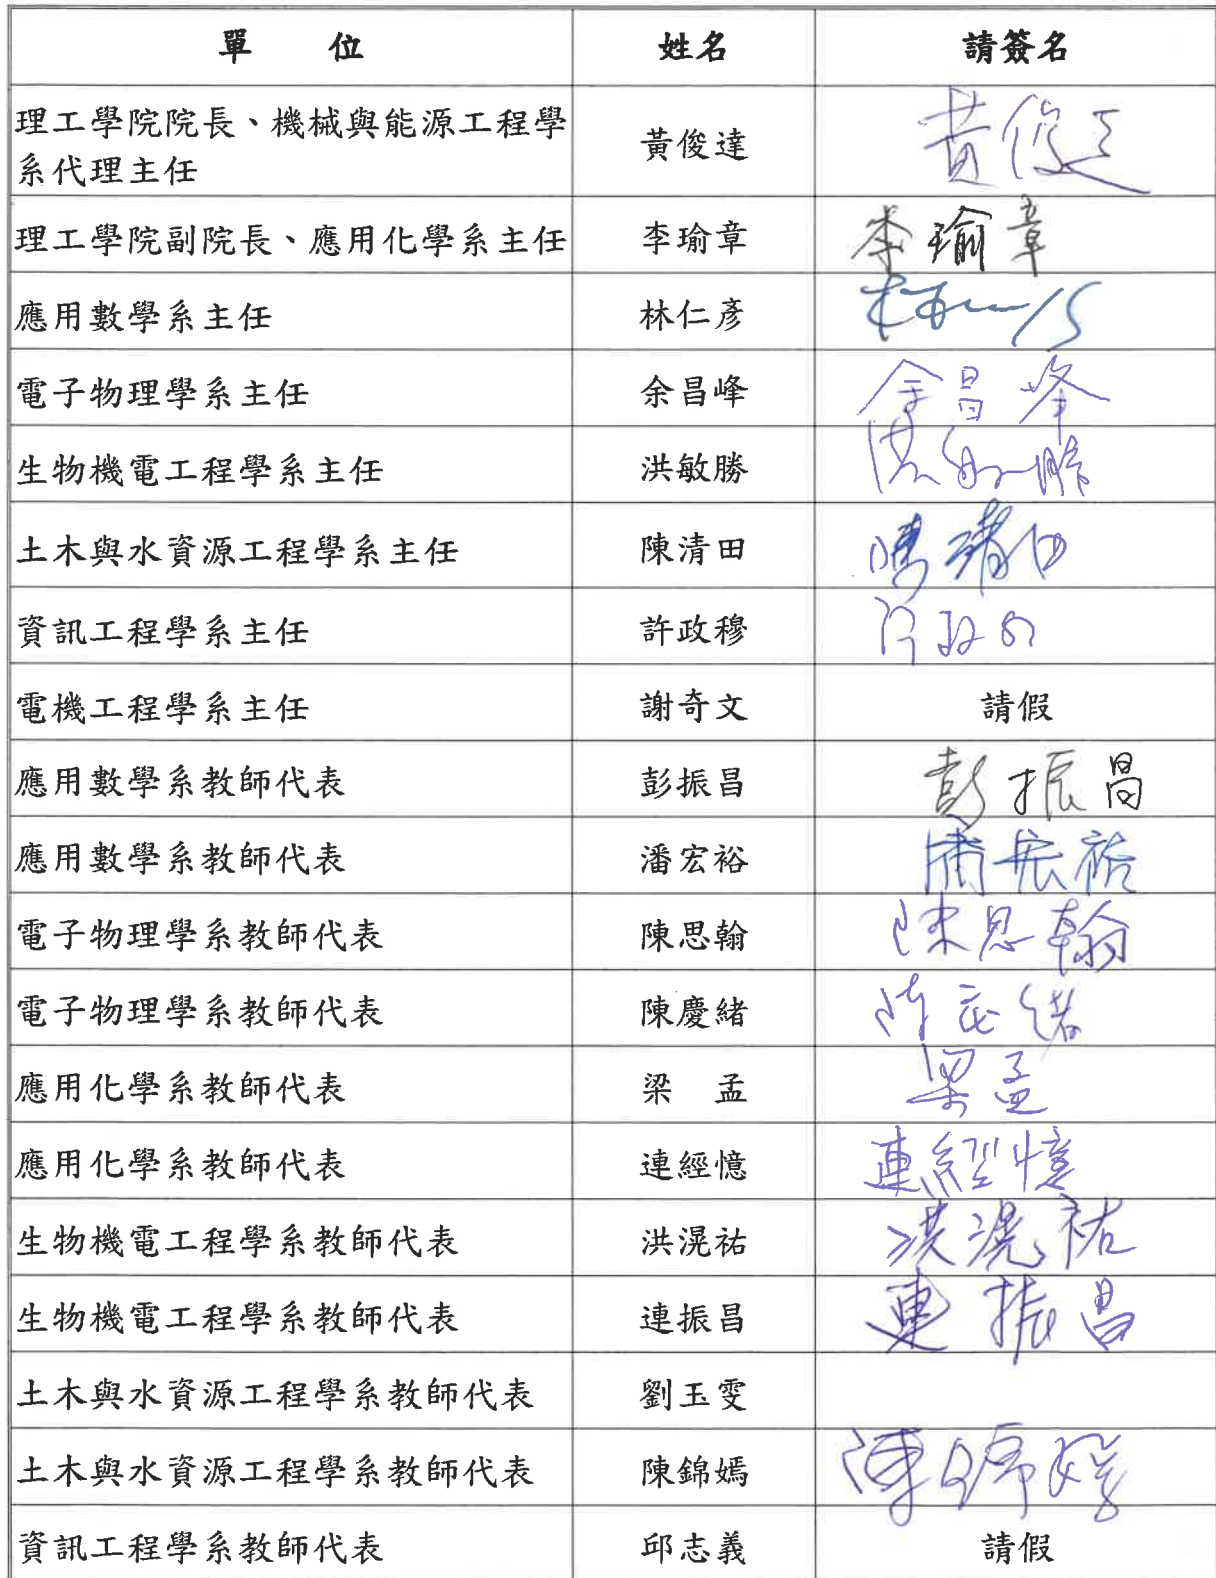 單 位 姓名 請簽名
理工學院院長、機械與能源工程學
系代理主任 黃俊達 黃俊達
理工學院副院長、應用化學系主任 李瑜章 李瑜章
應用數學系主任 林仁彥
電子物理學系主任 余昌峰 余昌峰
生物機電工程學系主任 洪敏勝 洪敏勝
土木與水資源工程學系主任 陳清田 陳清田
資訊工程學系主任 許政穆 許政穆
電機工程學系主任 謝奇文 請假
應用數學系教師代表 彭振昌 彭振昌
應用數學系教師代表 潘宏裕 潘宏裕
電子物理學系教師代表 陳思翰 陳思翰
電子物理學系教師代表 陳慶緒 陳慶緒
應用化學系教師代表 梁 孟 梁孟
應用化學系教師代表 連經憶 連經憶
生物機電工程學系教師代表 洪滉祐 洪滉祐
生物機電工程學系教師代表 連振昌 連振昌
土木與水資源工程學系教師代表 劉玉雯
土木與水資源工程學系教師代表 陳錦嫣 陳錦嫣
資訊工程學系教師代表 邱志義 請假